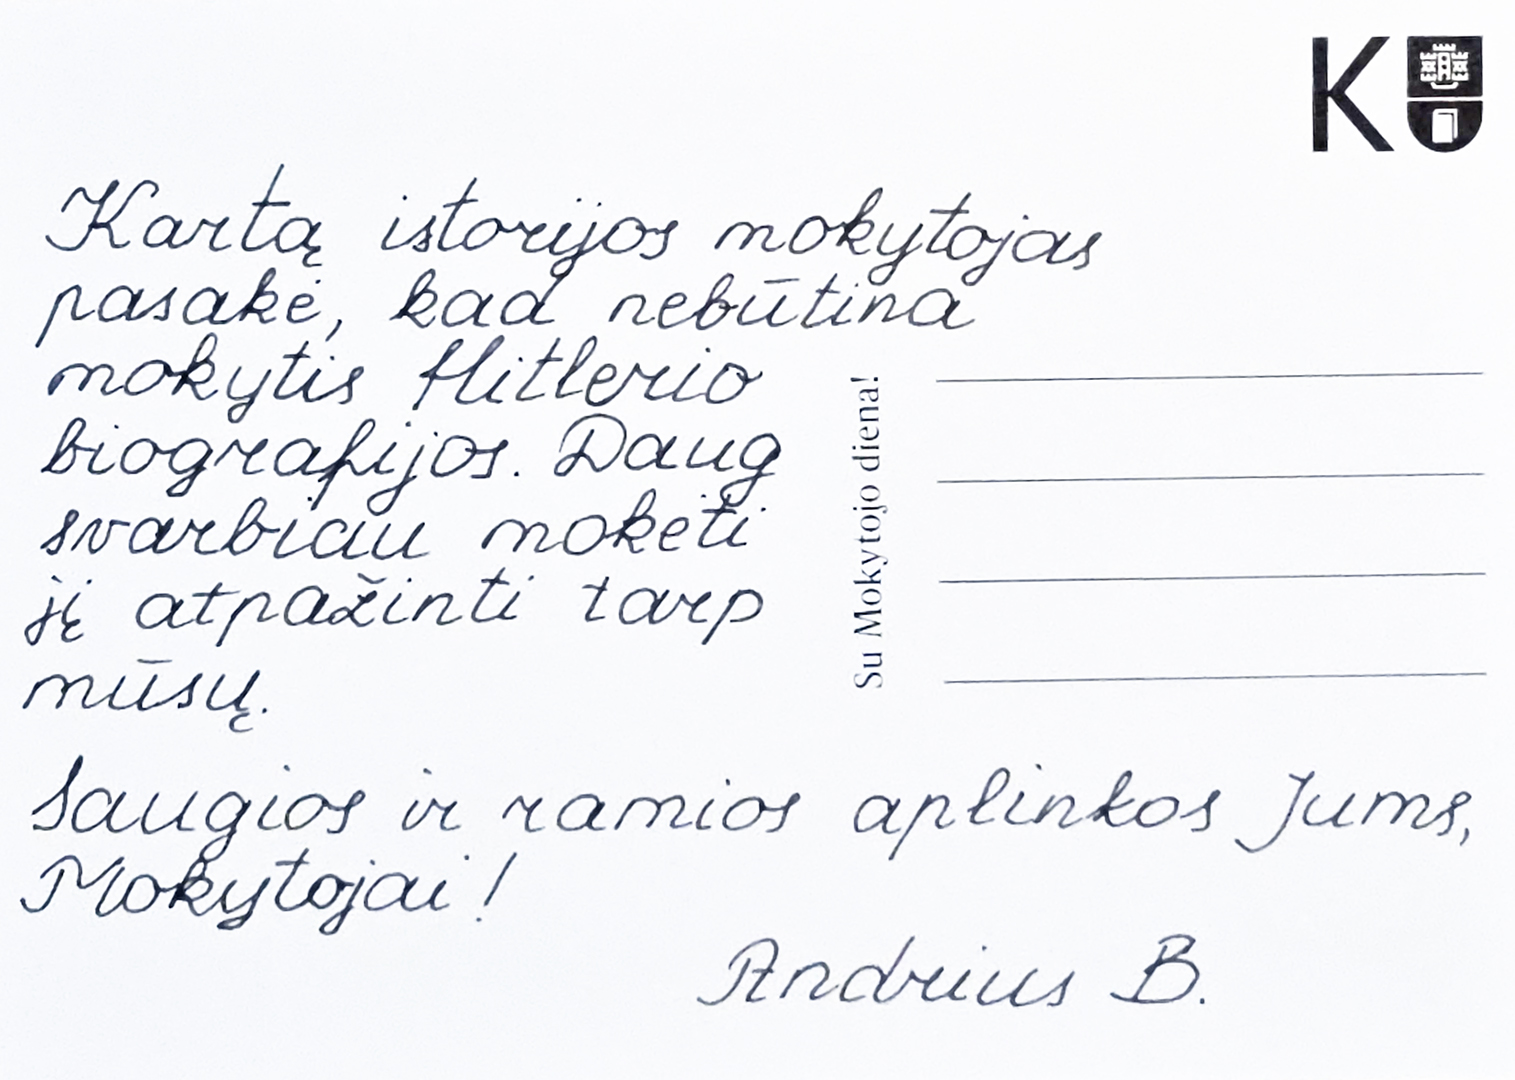 KU
Kartą istorijos mokytojas
pasakė, kad nebūtina
mokytis Hitlerio
biografijos. Daug
svarbiau mokėti
jį atpažinti tarp
mūsų.
Su Mokytojo diena!
Saugios ir ramios aplinkos Jums,
Mokytojai!
Andrius B.